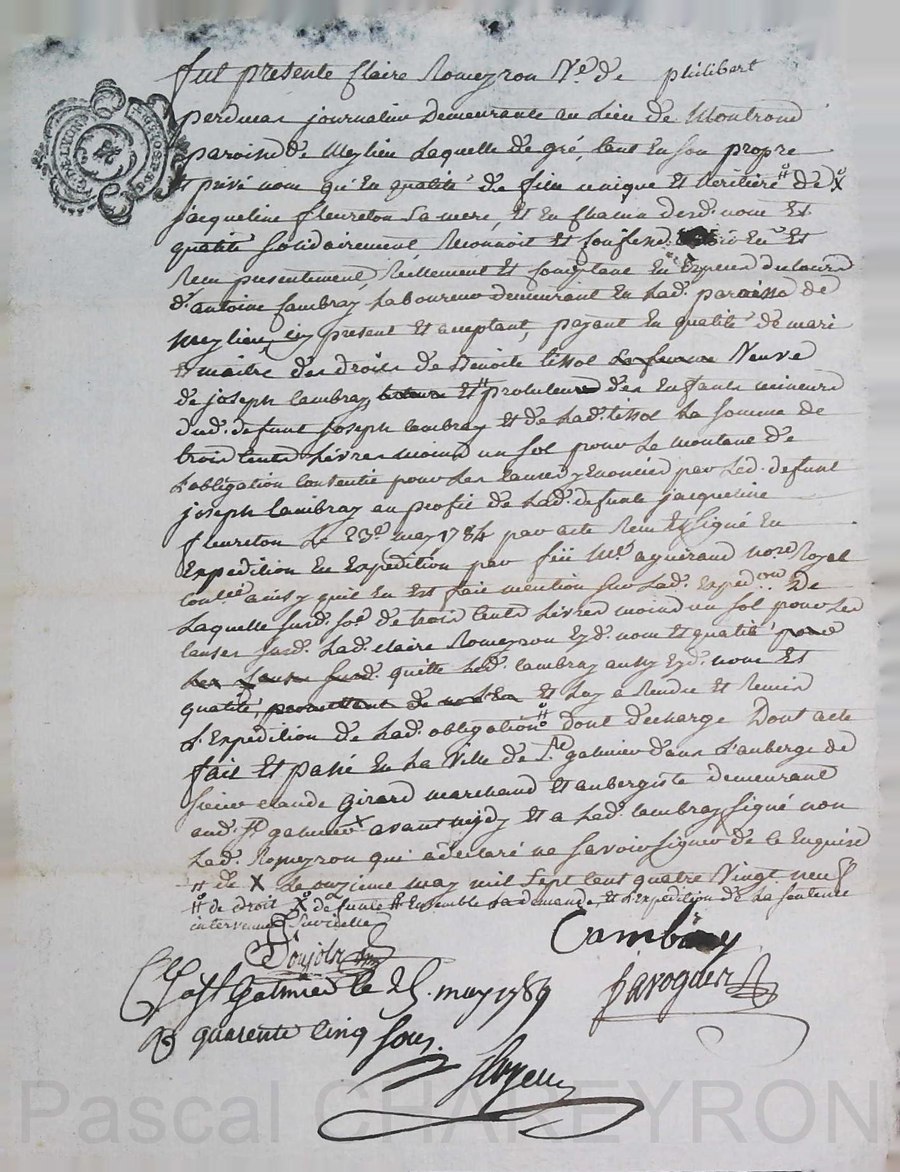 fut presente Claire Romeyron Ve. de philibert
perdueas journalier Demeurante au Lieu de Montrond
paroisse de Meylieu Laquelle de gré, tant En Son propre
Et privé nom qu'En qualité de fille unique Et heritiere # de X
jacqueline fleureton Sa mere, Et En Chacun desd. nom Et
qualité Solidairement Reconnoit Et Confesse avoir Eu Et
Recu presentement, Reellement Et Comptant En Especes de Cours
d'antoine Cambray Laboureur demeurant En Lad. paroisse de
meylieu, icy present Et acceptant, payant En qualité de mari
Et maitre des droits de Benoite tissot Veuve
de joseph Cambray Et protuteur des Enfants mineurs
dud. defunt joseph Cambray Et de Lad. tissot La Somme de
trois Cents Livres moins un Sol pour Le montant de
L'obligation Consentie pour Les Causes y Enoncées par Led. defunt
joseph Cambray au profit de Lad. defunte jacqueline
fleureton Le 23e. may 1784 par acte Recu Et Signé En
Expedition par feu Me. aguiraud nore. Royal
ainsy quil En Est fait mention Sur Lad. Expedon. De
Laquelle Susd. Se. de trois Cents Livres moins un Sol pour Les
Causes Susd. Lad. Claire Romeyron Ezd. nom Et qualité
quitte Led. Cambray aussy Ezd. nom Et
qualité Et Luy a Rendu Et Remis
L'Expedition de Lad. obligation # dont decharge Dont acte
fait Et passé En La Ville de St. galmier dans L'auberge de
Sieur Claude Girard marchand Et aubergiste demeurant
aud. St. galmier X avant midy Et a Led. Cambray Signé non
Lad. Romeyron qui a declaré ne Savoir Signer de Ce Enquise
# de X Le onzieme may mil Sept Cent quatre Vingt neuf
# de droit X defunte # Ensemble La demande, Et L'Expedition de La Sentence
intervenue
Cambray
Clé a St. Galmier le 25. may 1789
R quarente Cinq Sous.
Pascal CHAREYRON